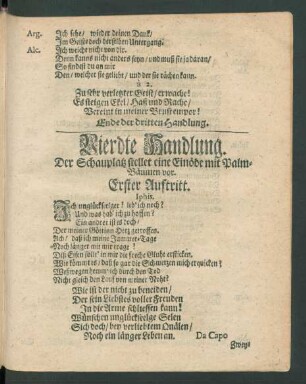 Arg. Ich sehe/ wieder deinen Danck/
Im Geist doch derselben Untergang.
Alc. Ich weiche nicht von dir.
Denn kanns nicht anders seyn/ und muß sie ja daran/
So findest du an mir
Den/ welcher sie geliebt/ und der sie rächen kann.
à 2.
Zu Ehr verletzter Geist/ erwache!
Es steigen Ekel/ Haß und Rache/
Vereint in meiner Brust empor!
Ende der dritten Handlung.
Vierdte Handlung.
Der Schauplatz stellet eine Einöde mit Palm-
Bäumen vor.
Erster Auftritt.
Iphis.
Ich unglückseliger! leb' ich noch?
Und was hab' ich zu hoffen?
Ein andrer ist es doch/
Der meiner Göttinn Hertz getroffen.
Ach! daß ich meine Jammer-Tage
Noch länger mit mir trage!
Diß Eisen sollt' in mir die freche Gluht ersticken.
Wie kömmt es/ daß so gar die Schmertzen mich erquicken?
Weßwegen hemm' ich durch den Tod
Nicht gleich den Lauf von meiner Noht?
Wie ist der nicht zu beneiden/
Der sein Liebstes voller Freuden
In die Arme schliessen kann!
Wünschen unglückselge Seelen
Sich doch/ bey verliebtem Quälen/
Noch ein länger Leben an. Da Capo
Zwey-